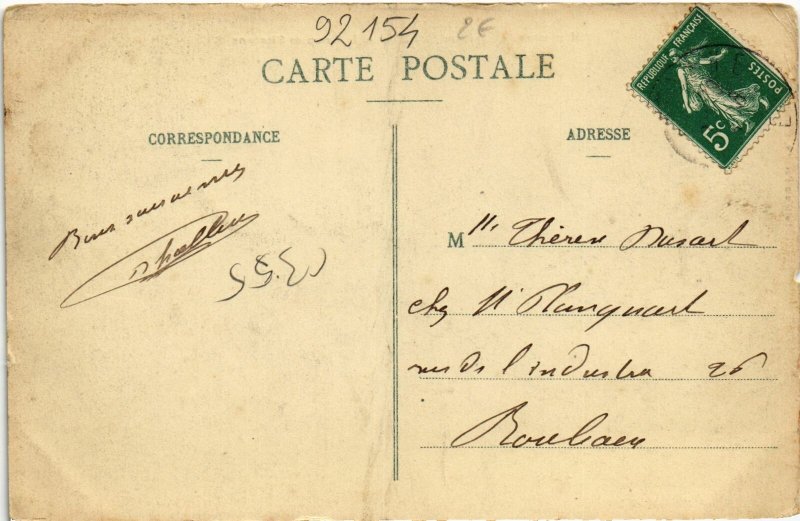 92154 2E
CARTE POSTALE
RÉPUBLIQUE FRANÇAISE
POSTES
5c
CORRESPONDANCE
ADRESSE
Bons souvenirs
Mlle Thérèse Dusart
chez Mr Planquart
rue de l'industrie 26
Roubaix